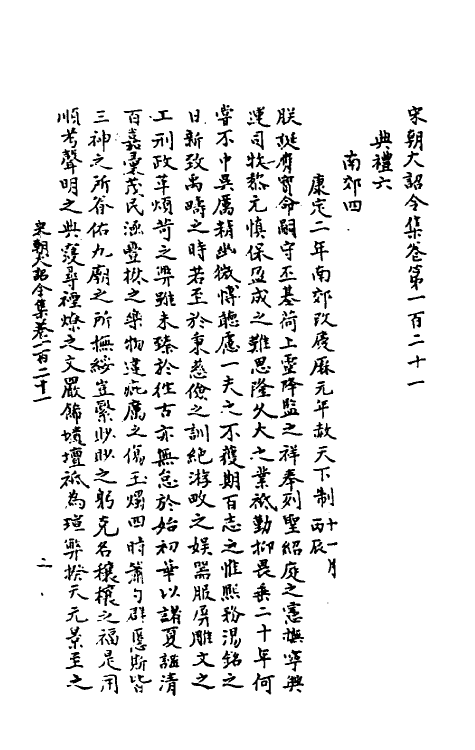 宋朝大詔令集卷第一百二十一
典禮六
南郊四
康定二年南郊改慶厯元年赦天下制十一月丙辰
朕誕膺寶命嗣守丕基荷上靈降監之祥奉列聖紹庭之憲撫寧興
運司牧黎元慎保盈成之難思隆久大之業祗勤抑畏垂二十年何
嘗不中昃厲精幽微博聽慮一夫之不獲期百志之惟熙粉湯銘之
日新致禹疇之時若至於秉慈儉之訓絕游畋之娛器服屏雕文之
工刑政革煩苛之弊雖未臻於往古亦無怠於始初華以謂夏謳清
百嘉稟茂民洽豐楙之樂物違疵厲之傷玉燭四時簫勺群慝斯皆
三神之所眷佑九廟之所撫綏豈繄眇眇之躬克名穰穰之福是用
順考聲明之典蒐尋禋燎之文嚴飾壇壝祗為瑄幣揆天元景至之
宋朝大詔令集卷一百二十一
一